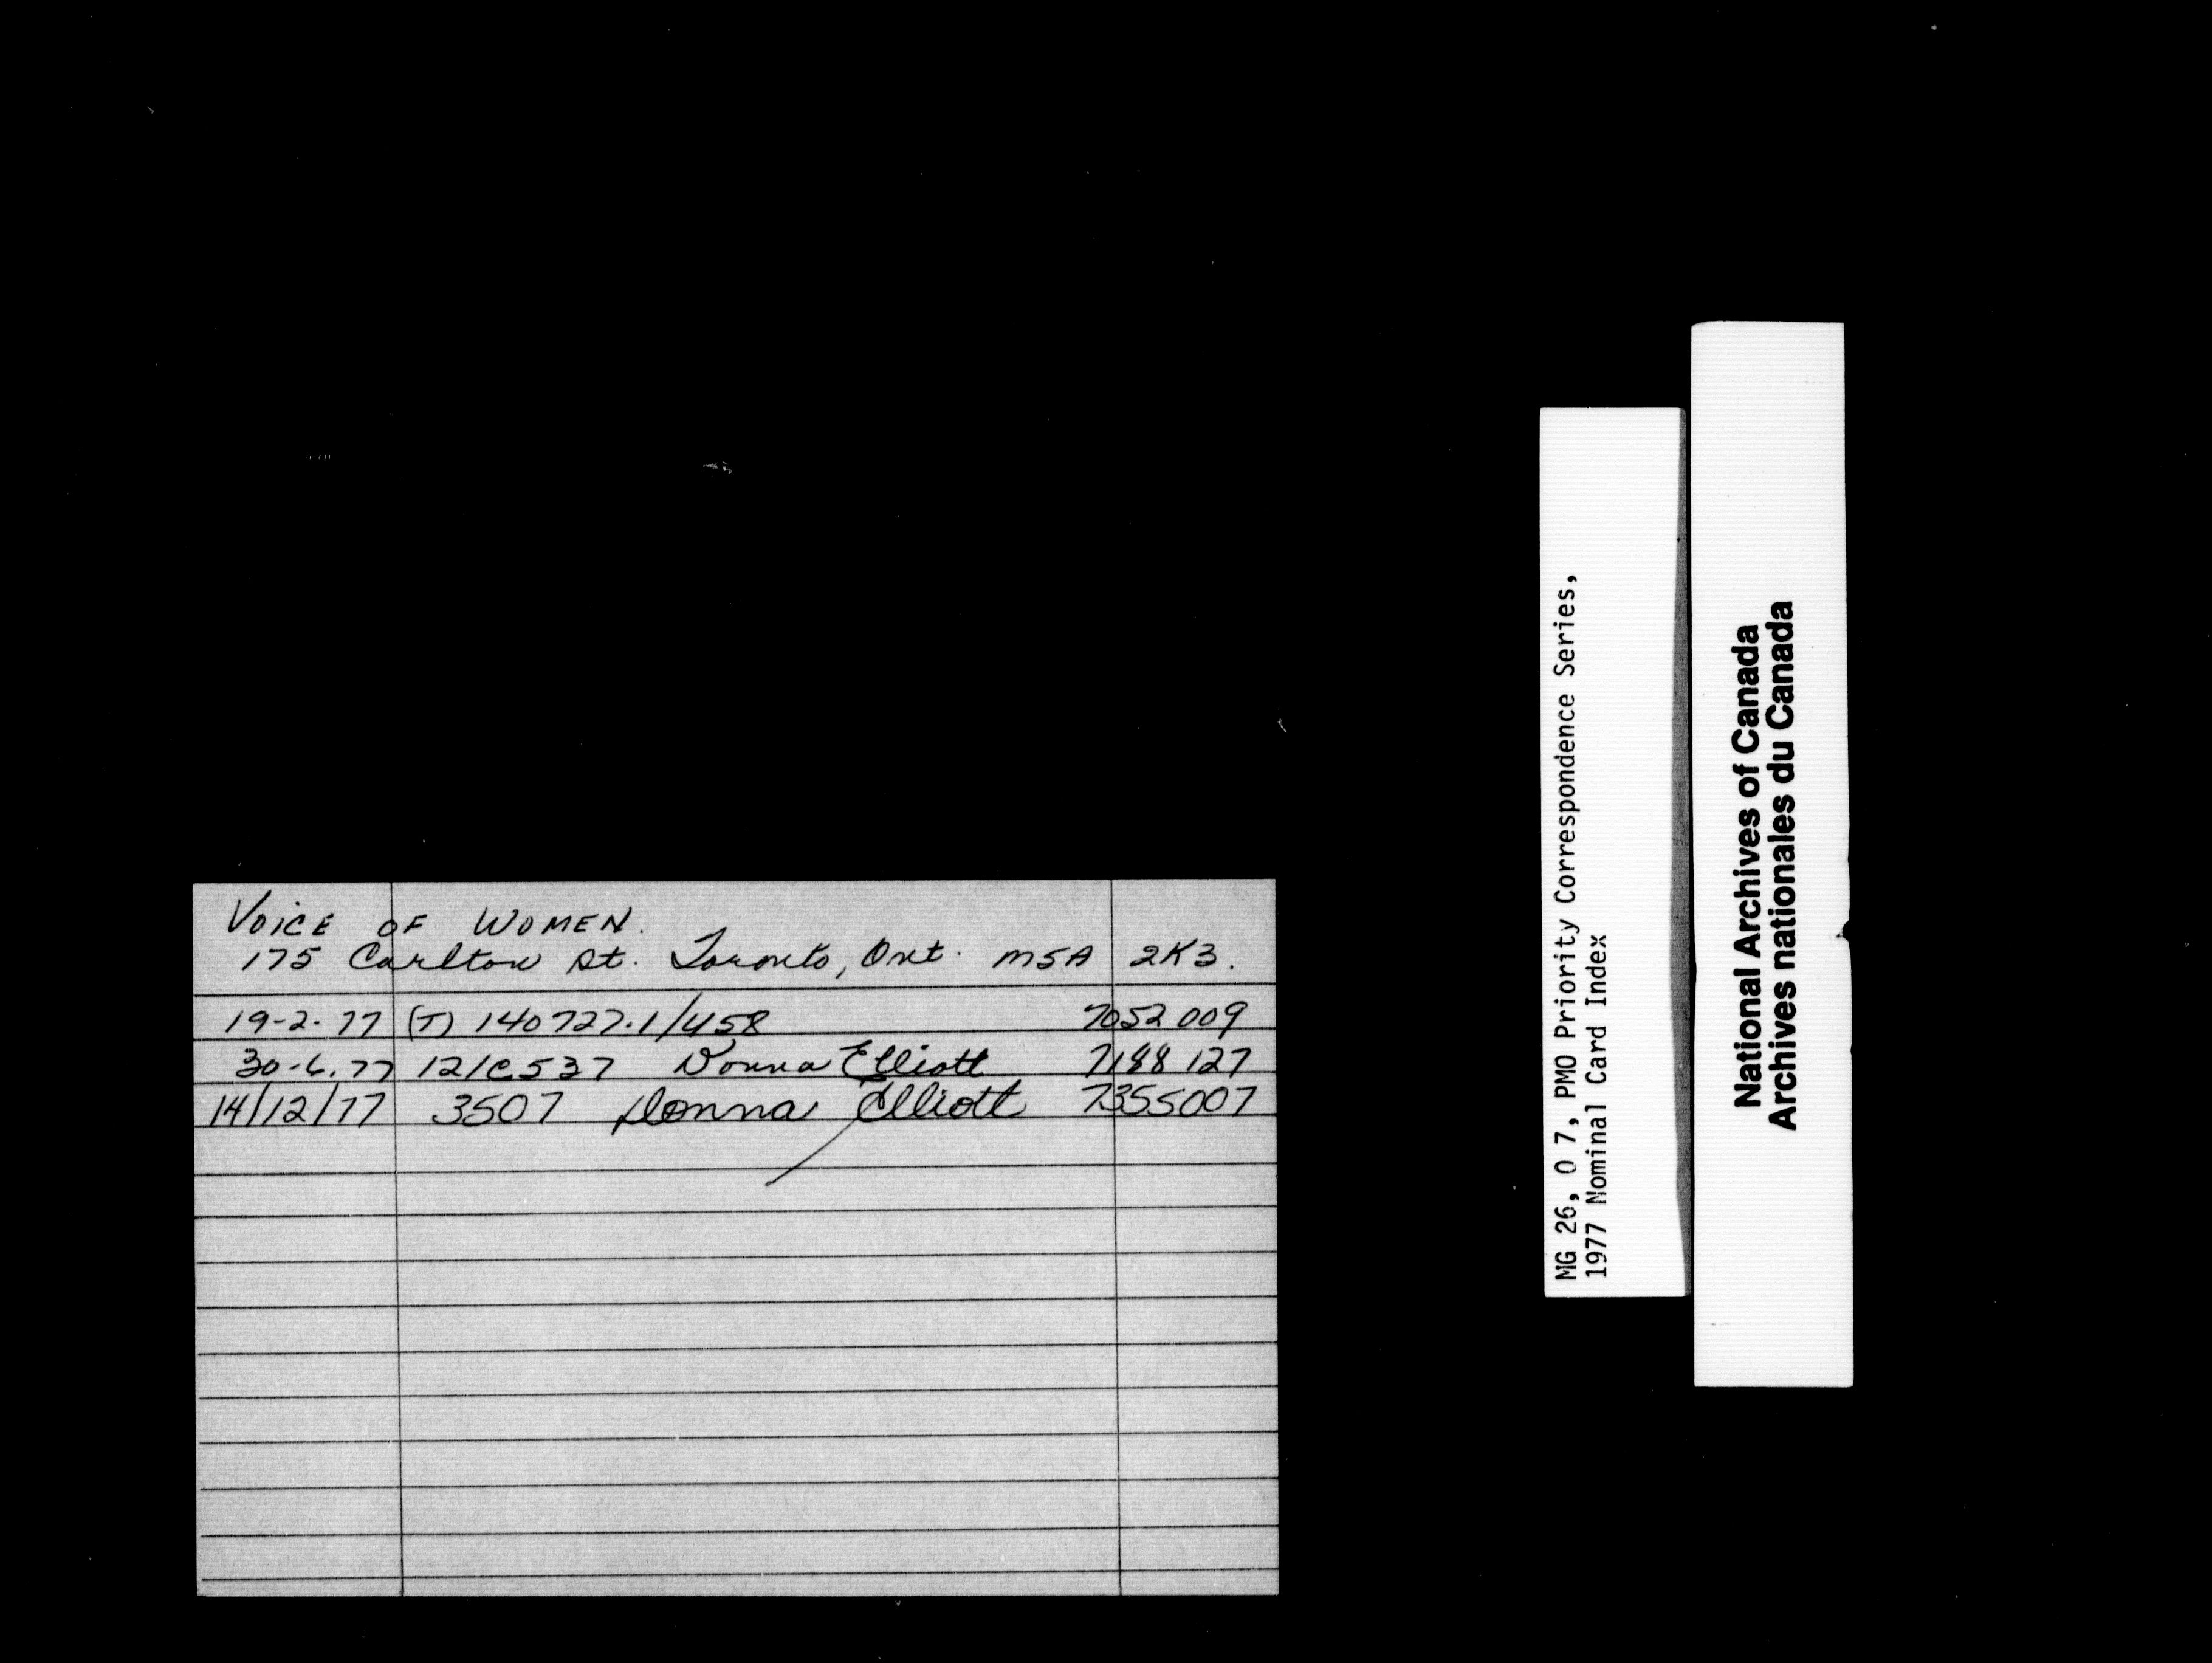 VOICE OF WOMEN.
175 Carlton St. Toronto, Ont. M5A 2K3.
19-2-77 (T) 140727.1/458 7052 009
30-6.77 121C537 Donna Elliott 7188 127
14/12/77 3507 Donna Elliott 7355007
MG 26, O 7, PMO Priority Correspondence Series,
1977 Nominal Card Index
National Archives of Canada
Archives nationales du Canada